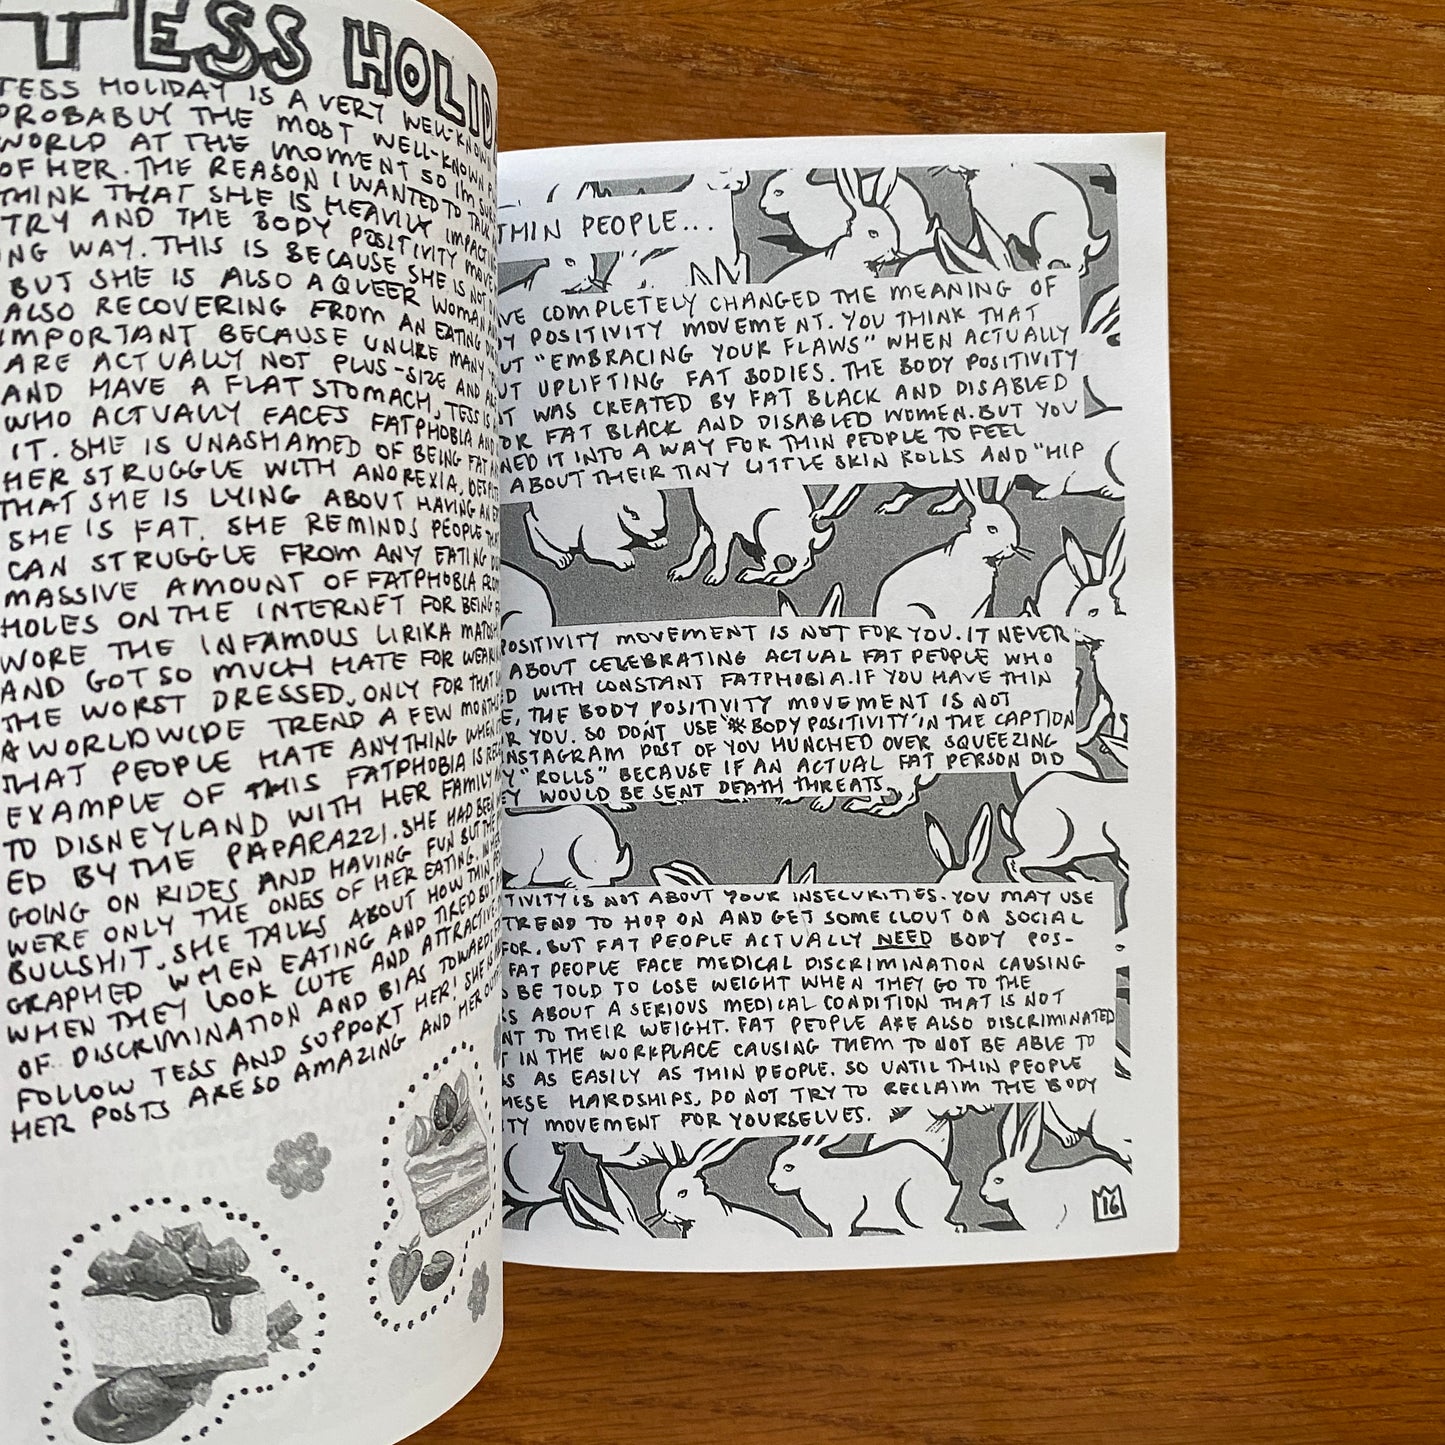 TESS HOLID
TESS HOLIDAY IS A VERY WELL-KNOWN
PROBABLY THE MOST WELL-KNOWN
WORLD AT THE MOMENT SO I'M SUR
OF HER. THE REASON I WANTED TO TALK
THINK THAT SHE IS HEAVILY IMPACTING
TRY AND THE BODY POSITIVITY MOVE
NG WAY. THIS IS BECAUSE SHE IS NOT
BUT SHE IS ALSO A QUEER WOMAN
ALSO RECOVERING FROM AN EATING
IMPORTANT BECAUSE UNLIKE MANY
ARE ACTUALLY NOT PLUS-SIZE AND
AND HAVE A FLAT STOMACH, TESS IS
WHO ACTUALLY FACES FATPHOBIA AND
IT. SHE IS UNASHAMED OF BEING FAT
HER STRUGGLE WITH ANOREXIA, DESPITE
THAT SHE IS LYING ABOUT HAVING AN
SHE IS FAT. SHE REMINDS PEOPLE THAT
CAN STRUGGLE FROM ANY EATING
MASSIVE AMOUNT OF FATPHOBIA FROM
HOLES ON THE INTERNET FOR BEING
WORE THE INFAMOUS LIRIKA MATOSH
AND GOT SO MUCH HATE FOR WEARIN
THE WORST DRESSED, ONLY FOR THAT
A WORLDWIDE TREND A FEW MONTHS
THAT PEOPLE HATE ANYTHING WHEN
EXAMPLE OF THIS FATPHOBIA IS
TO DISNEYLAND WITH HER FAMILY
ED BY THE PAPARAZZI. SHE HAD BEEN
GOING ON RIDES AND HAVING FUN BUT THE
WERE ONLY THE ONES OF HER EATING.
BULLSHIT. SHE TALKS ABOUT HOW THIN
GRAPHED WHEN EATING AND TIRED BUT
WHEN THEY LOOK CUTE AND ATTRACTIVE.
OF DISCRIMINATION AND BIAS TOWARDS
FOLLOW TESS AND SUPPORT HER! SHE IS
HER POSTS ARE SO AMAZING AND HER
THIN PEOPLE...
VE COMPLETELY CHANGED THE MEANING OF
DY POSITIVITY MOVEMENT. YOU THINK THAT
UT "EMBRACING YOUR FLAWS" WHEN ACTUALLY
UT UPLIFTING FAT BODIES. THE BODY POSITIVITY
T WAS CREATED BY FAT BLACK AND DISABLED
OR FAT BLACK AND DISABLED WOMEN. BUT YOU
NED IT INTO A WAY FOR THIN PEOPLE TO FEEL
ABOUT THEIR TINY LITTLE SKIN ROLLS AND "HIP
POSITIVITY MOVEMENT IS NOT FOR YOU. IT NEVER
ABOUT CELEBRATING ACTUAL FAT PEOPLE WHO
ED WITH CONSTANT FATPHOBIA. IF YOU HAVE THIN
E, THE BODY POSITIVITY MOVEMENT IS NOT
R YOU. SO DON'T USE "#BODYPOSITIVITY" IN THE CAPTION
INSTAGRAM POST OF YOU HUNCHED OVER SQUEEZING
Y "ROLLS" BECAUSE IF AN ACTUAL FAT PERSON DID
EY WOULD BE SENT DEATH THREATS.
TIVITY IS NOT ABOUT YOUR INSECURITIES. YOU MAY USE
TREND TO HOP ON AND GET SOME CLOUT ON SOCIAL
FOR. BUT FAT PEOPLE ACTUALLY NEED BODY POS-
FAT PEOPLE FACE MEDICAL DISCRIMINATION CAUSING
BE TOLD TO LOSE WEIGHT WHEN THEY GO TO THE
RS ABOUT A SERIOUS MEDICAL CONDITION THAT IS NOT
NT TO THEIR WEIGHT. FAT PEOPLE ARE ALSO DISCRIMINATED
T IN THE WORKPLACE CAUSING THEM TO NOT BE ABLE TO
S AS EASILY AS THIN PEOPLE. SO UNTIL THIN PEOPLE
HESE HARDSHIPS, DO NOT TRY TO RECLAIM THE BODY
ITY MOVEMENT FOR YOURSELVES.
16